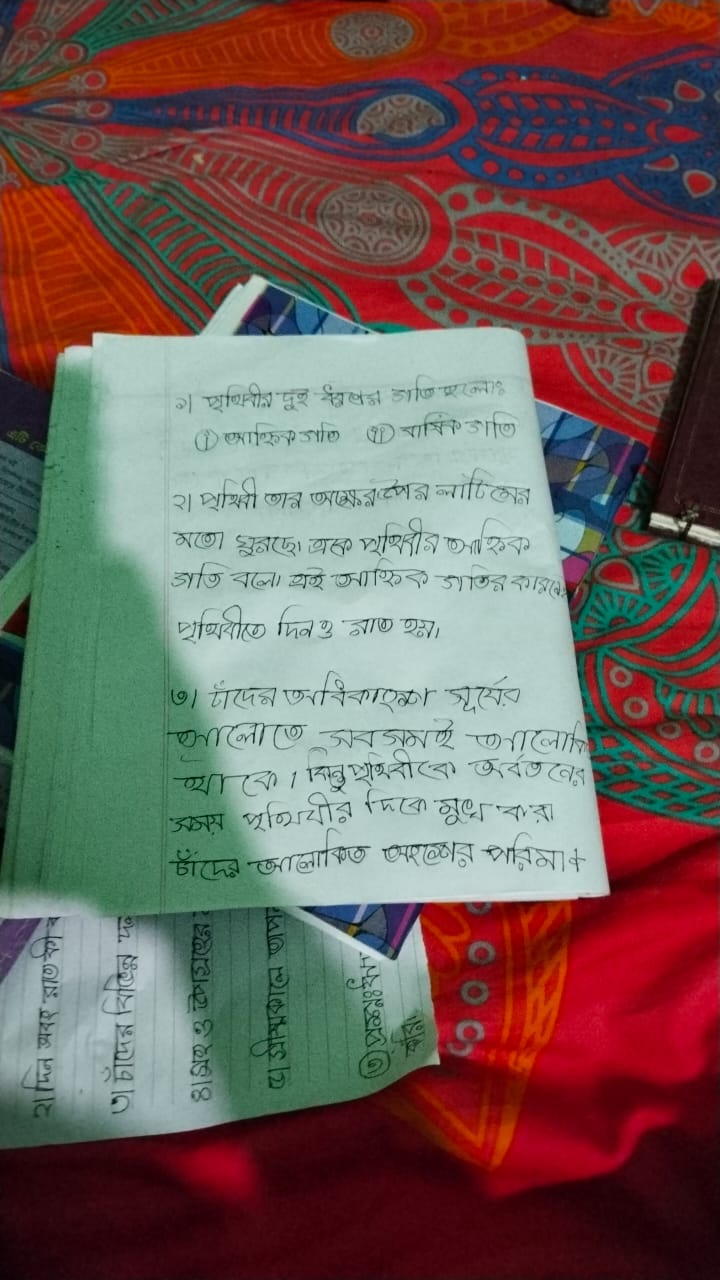 ১। পৃথিবীর দুই ধরণের গতি হলোঃ
(i) আহ্নিক গতি (ii) বার্ষিক গতি
২। পৃথিবী তার অক্ষের উপর লাটিমের
মতো ঘুরছে। একে পৃথিবীর আহ্নিক
গতি বলে। এই আহ্নিক গতির কারণে
পৃথিবীতে দিন ও রাত হয়।
৩। চাঁদের অধিকাংশ সূর্যের
আলোতে সবসময়ই আলোকি
থাকে। কিন্তু পৃথিবীকে আবর্তনের
সময় পৃথিবীর দিকে মুখ করা
চাঁদের আলোকিত অংশের পরিমাণ
২। দিন এবং রাত কী
৩। চাঁদের বিভিন্ন
৪। গ্রহ ও উপগ্রহের
৫। গ্রীষ্মকালে তাপ